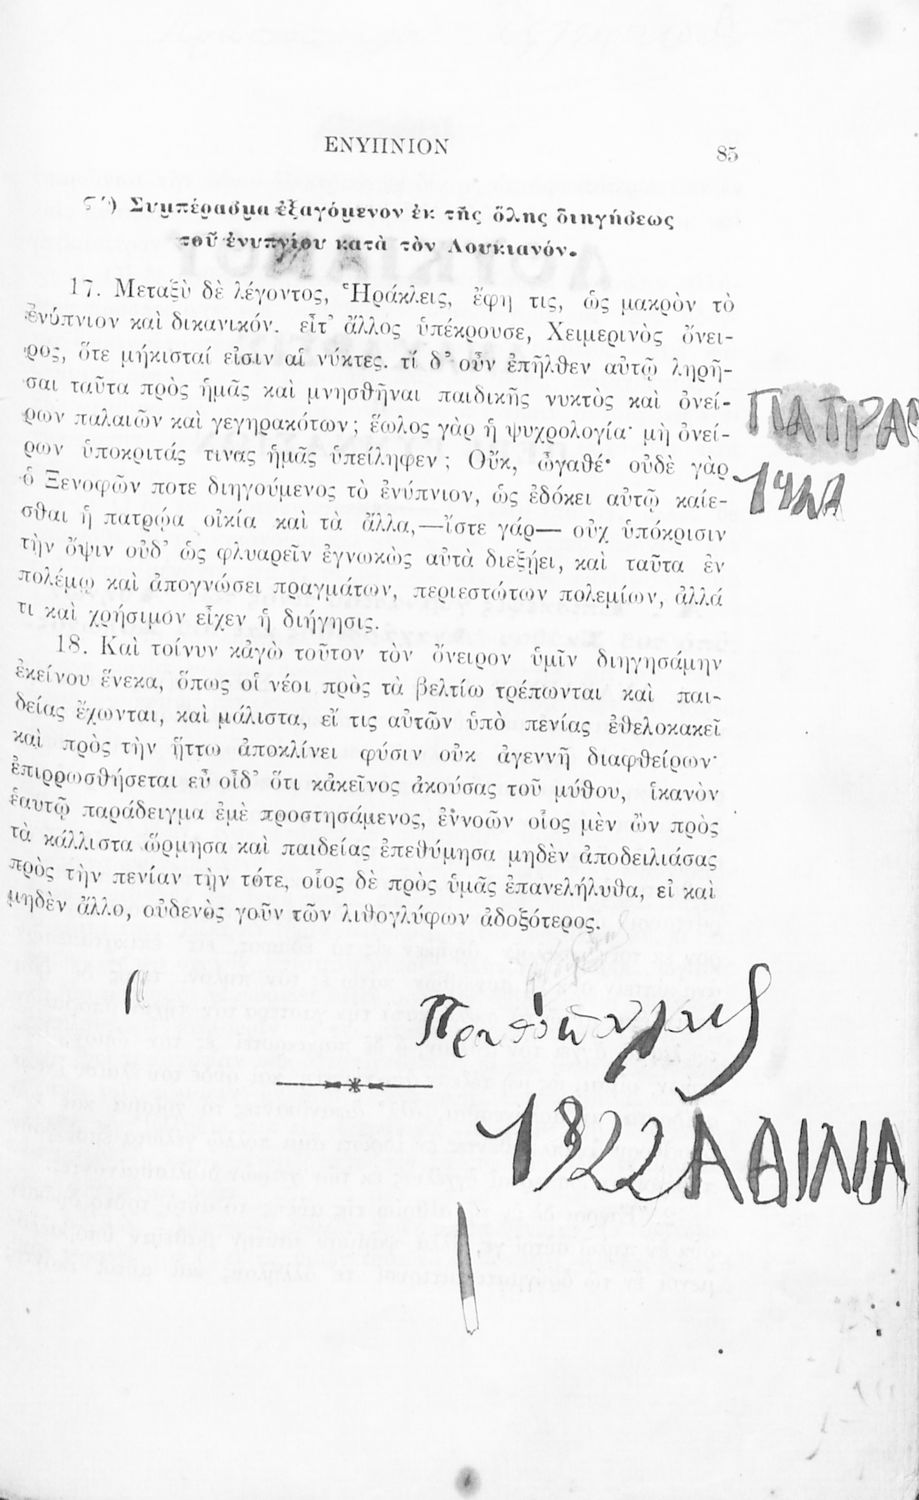 ΕΝΥΠΝΙΟΝ
85
Ϛ´) Συμπέρασμα ἐξαγόμενον ἐκ τῆς ὅλης διηγήσεως
τοῦ ἐνυπνίου κατὰ τὸν Λουκιανόν.
17. Μεταξὺ δὲ λέγοντος, Ἡράκλεις, ἔφη τις, ὡς μακρὸν τὸ
ἐνύπνιον καὶ δικανικόν. εἶτ' ἄλλος ὑπέκρουσε, Χειμερινὸς ὄνει-
ρος, ὅτε μήκισταί εἰσιν αἱ νύκτες. τί δ' οὖν ἐπῆλθεν αὐτῷ ληρῆ-
σαι ταῦτα πρὸς ἡμᾶς καὶ μνησθῆναι παιδικῆς νυκτὸς καὶ ὀνεί-
ρων παλαιῶν καὶ γεγηρακότων; ἕωλος γὰρ ἡ ψυχρολογία· μὴ ὀνεί-
ρων ὑποκριτάς τινας ἡμᾶς ὑπείληφεν; Οὔκ, ὠγαθέ· οὐδὲ γὰρ
ὁ Ξενοφῶν ποτε διηγούμενος τὸ ἐνύπνιον, ὡς ἐδόκει αὐτῷ καίε-
σθαι ἡ πατρῴα οἰκία καὶ τὰ ἄλλα,—ἴστε γάρ— οὐχ ὑπόκρισιν
τὴν ὄψιν οὐδ' ὡς φλυαρεῖν ἐγνωκὼς αὐτὰ διεξῄει, καὶ ταῦτα ἐν
πολέμῳ καὶ ἀπογνώσει πραγμάτων, περιεστώτων πολεμίων, ἀλλά
τι καὶ χρήσιμον εἶχεν ἡ διήγησις.
18. Καὶ τοίνυν κἀγὼ τοῦτον τὸν ὄνειρον ὑμῖν διηγησάμην
ἐκείνου ἕνεκα, ὅπως οἱ νέοι πρὸς τὰ βελτίω τρέπωνται καὶ παι-
δείας ἔχωνται, καὶ μάλιστα, εἴ τις αὐτῶν ὑπὸ πενίας ἐθελοκακεῖ
καὶ πρὸς τὴν ἥττω ἀποκλίνει φύσιν οὐκ ἀγεννῆ διαφθείρων·
ἐπιρρωσθήσεται εὖ οἶδ' ὅτι κἀκεῖνος ἀκούσας τοῦ μύθου, ἱκανὸν
ἑαυτῷ παράδειγμα ἐμὲ προστησάμενος, ἐννοῶν οἷος μὲν ὢν πρὸς
τὰ κάλλιστα ὥρμησα καὶ παιδείας ἐπεθύμησα μηδὲν ἀποδειλιάσας
πρὸς τὴν πενίαν τὴν τότε, οἷος δὲ πρὸς ὑμᾶς ἐπανελήλυθα, εἰ καὶ
μηδὲν ἄλλο, οὐδενὸς γοῦν τῶν λιθογλύφων ἀδοξότερος.
ΠΑΤΡΑΣ
1922 ΑΘΙΝΑ